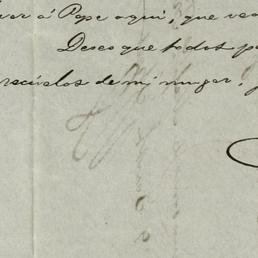 ver á Pepe aqui, que ve
Deseo que todos p
recuerdos de mi muger,